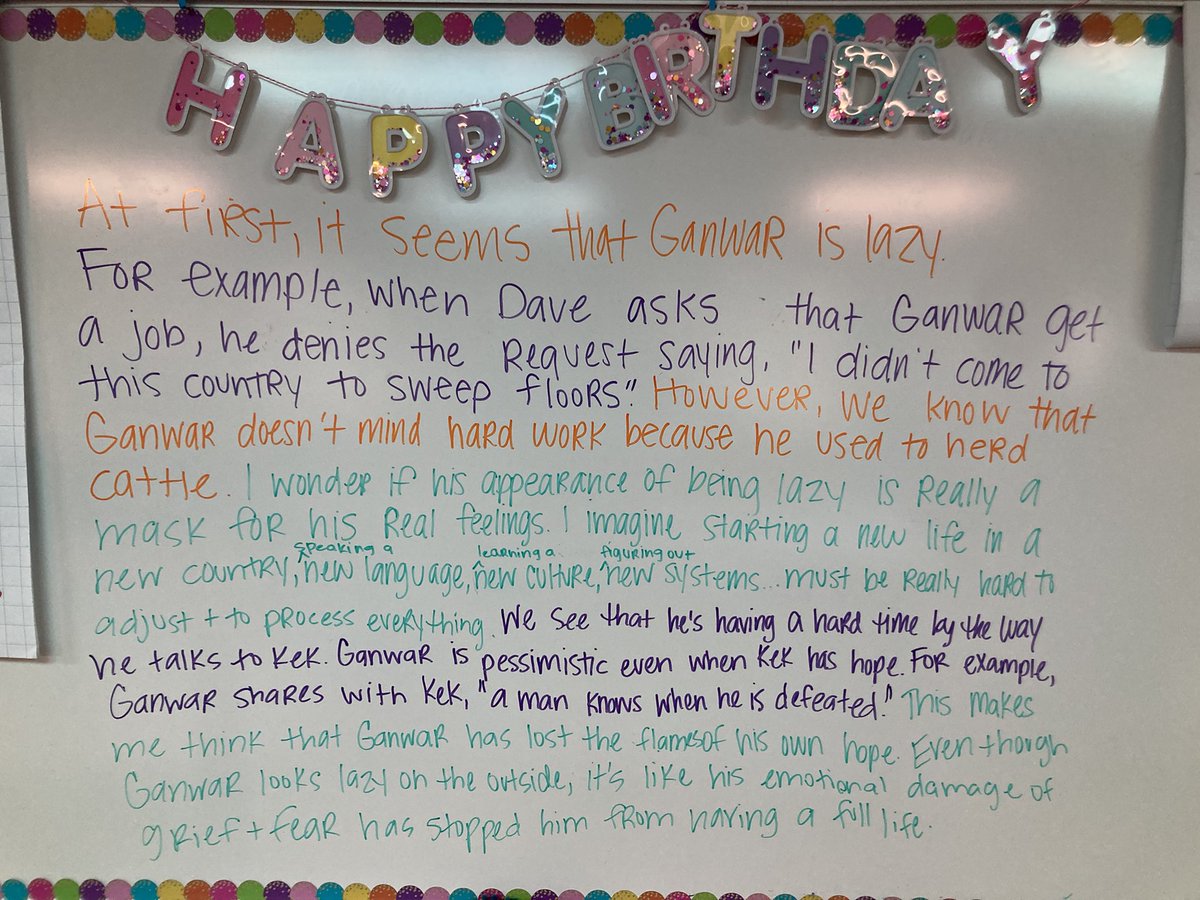 HAPPY BIRTHDAY
At first, it seems that Ganwar is lazy.
For example, when Dave asks that Ganwar get
a job, he denies the request saying, "I didn't come to
this country to sweep floors." However, we know that
Ganwar doesn't mind hard work because he used to herd
cattle. I wonder if his appearance of being lazy is really a
mask for his real feelings. I imagine starting a new life in a
speaking a learning a figuring out
new country, new language, new culture, new systems... must be really hard to
adjust + to process everything. We see that he's having a hard time by the way
he talks to Kek. Ganwar is pessimistic even when Kek has hope. For example,
Ganwar shares with Kek, "a man knows when he is defeated." This makes
me think that Ganwar has lost the flames of his own hope. Even though
Ganwar looks lazy on the outside, it's like his emotional damage of
grief + fear has stopped him from having a full life.